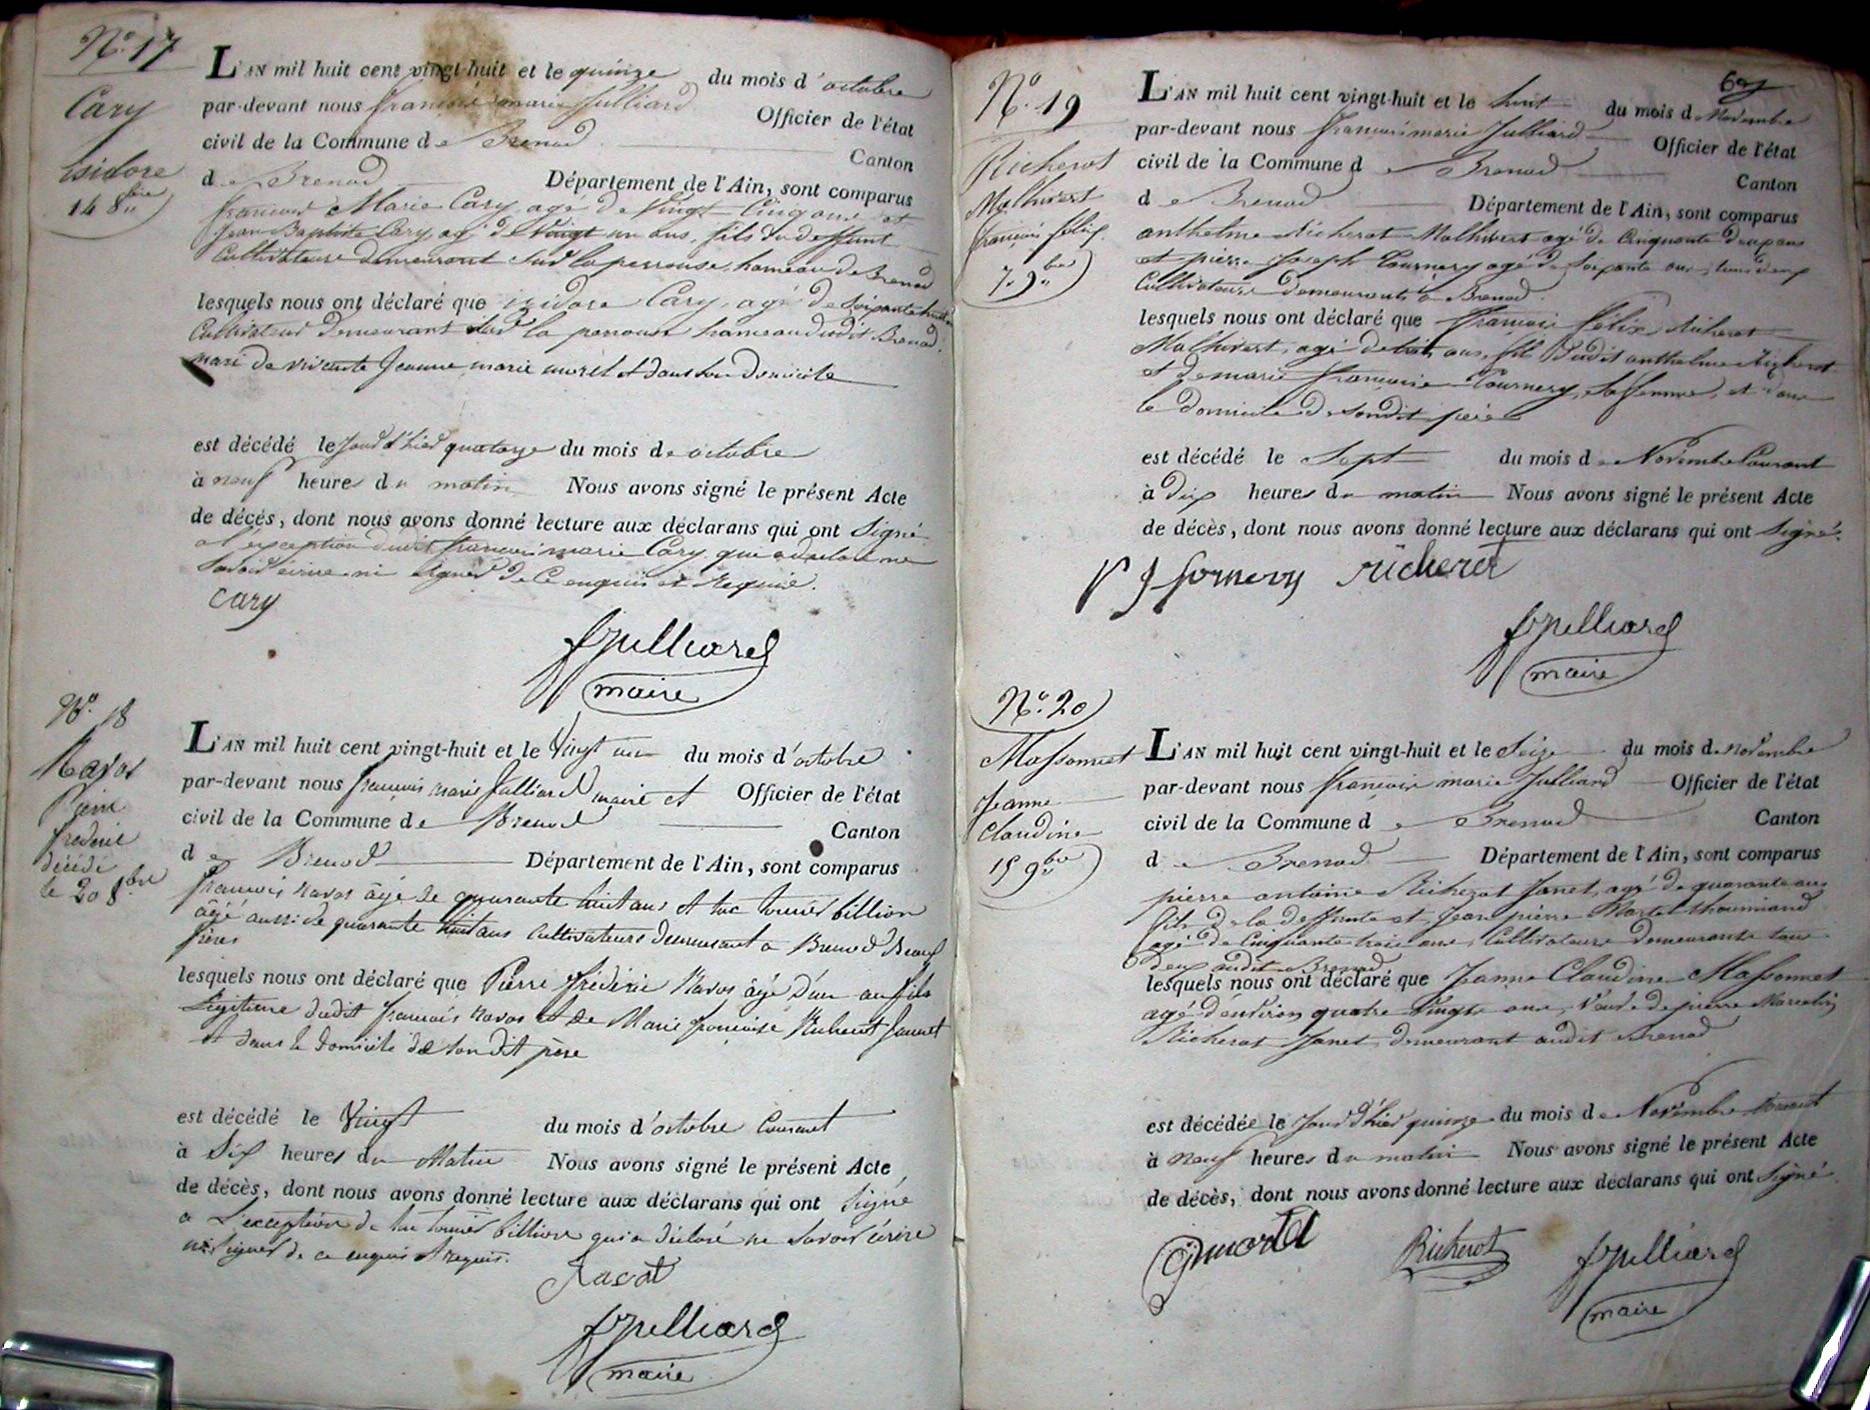 N.° 17
Cary
isidore
14 8bre
L'AN mil huit cent vingt-huit et le quinze du mois d'octobre
par-devant nous francois marie Julliard Officier de l'état
civil de la Commune de Brenod Canton
de Brenod Département de l'Ain, sont comparus
francois Marie Cary, agé de vingt Cinq ans et
Jean Baptiste Cary, agé de vingt un ans, fils du deffunt
Cultivateurs demeurant sur la perrouse, hameau de Brenod
lesquels nous ont déclaré que izidore Cary, agé de soixante huit ans
Cultivateur demeurant sur la perrouse hameau dudit Brenod,
mari de vivante Jeanne marie morel et dans son Domicile
est décédé le jour d'hier quatorze du mois de octobre
à neuf heures du matin Nous avons signé le présent Acte
de décès, dont nous avons donné lecture aux déclarans qui ont Signé
a l'exception dudit francois marie Cary qui a declaré ne
Savoir écrire ni Signer de Ce enquis et Requis.
Cary
fJulliard
maire
N.° 18
Ravot
Pierre
frederic
décédé
le 20 8.bre
L'AN mil huit cent vingt-huit et le Vingt un du mois d'octobre
par-devant nous francois marie Julliard maire et Officier de l'état
civil de la Commune de Brenod Canton
de Brenod Département de l'Ain, sont comparus
francois ravot âgé de quarante huit ans et luc tournier billion
âgé aussi de quarante huit ans Cultivateurs demeurant a Brenod Beaux
frères
lesquels nous ont déclaré que Pierre fréderic Ravot âgé d'un an fils
Légitime dudit francois ravot et de Marie françoise Richerot Jannet
et dans le domicile de son dit père
est décédé le Vingt du mois d'octobre Courant
à Six heures du Matin Nous avons signé le présent Acte
de décès, dont nous avons donné lecture aux déclarans qui ont Signé
a L'exception de luc tournier billion qui a déclaré ne Savoir écrire
ni Signer de ce enquis et requis.
Ravot
fJulliard
maire
N.° 19
Richerot
Malhivert
francois félix.
7 9bre
L'AN mil huit cent vingt-huit et le huit du mois de Novembre
par-devant nous francois marie Julliard Officier de l'état
civil de la Commune de Brenod Canton
de Brenod Département de l'Ain, sont comparus
anthelme Richerot Malhivert agé de Cinquante deux ans
et pierre Joseph Tournery agé de Soixante ans, tous deux
Cultivateurs demeurants a Brenod.
lesquels nous ont déclaré que francois félix Richerot
Malhivert, agé de trois ans, fils dudit anthelme Richerot
et de marie francoise Tournery, sa femme, et dans
le domicile de Sondit père
est décédé le Sept du mois de Novembre Courant
à dix heures du matin Nous avons signé le présent Acte
de décès, dont nous avons donné lecture aux déclarans qui ont Signé.
P J tornery richerot
fJulliard
maire
N.° 20
Massonnet
Jeanne
Claudine
15 9bre
L'AN mil huit cent vingt-huit et le Seize du mois de novembre
par-devant nous francois marie Julliard Officier de l'état
civil de la Commune de Brenod Canton
de Brenod Département de l'Ain, sont comparus
pierre antoine Richerot Janet, agé de quarante ans
fils de la deffunte et Jean pierre Martel
agé de Cinquante trois ans, Cultivateurs demeurants tous
deux audit Brenod
lesquels nous ont déclaré que Jeanne Claudine Massonnet
agé d'environ quatre Vingts ans, Veuve de pierre Marcelin
Richerot Janet, demeurant audit Brenod
est décédée le jour d'hier quinze du mois de Novembre Courant
à neuf heures du matin Nous avons signé le présent Acte
de décès, dont nous avons donné lecture aux déclarans qui ont Signé.
martel Richerot fJulliard
maire